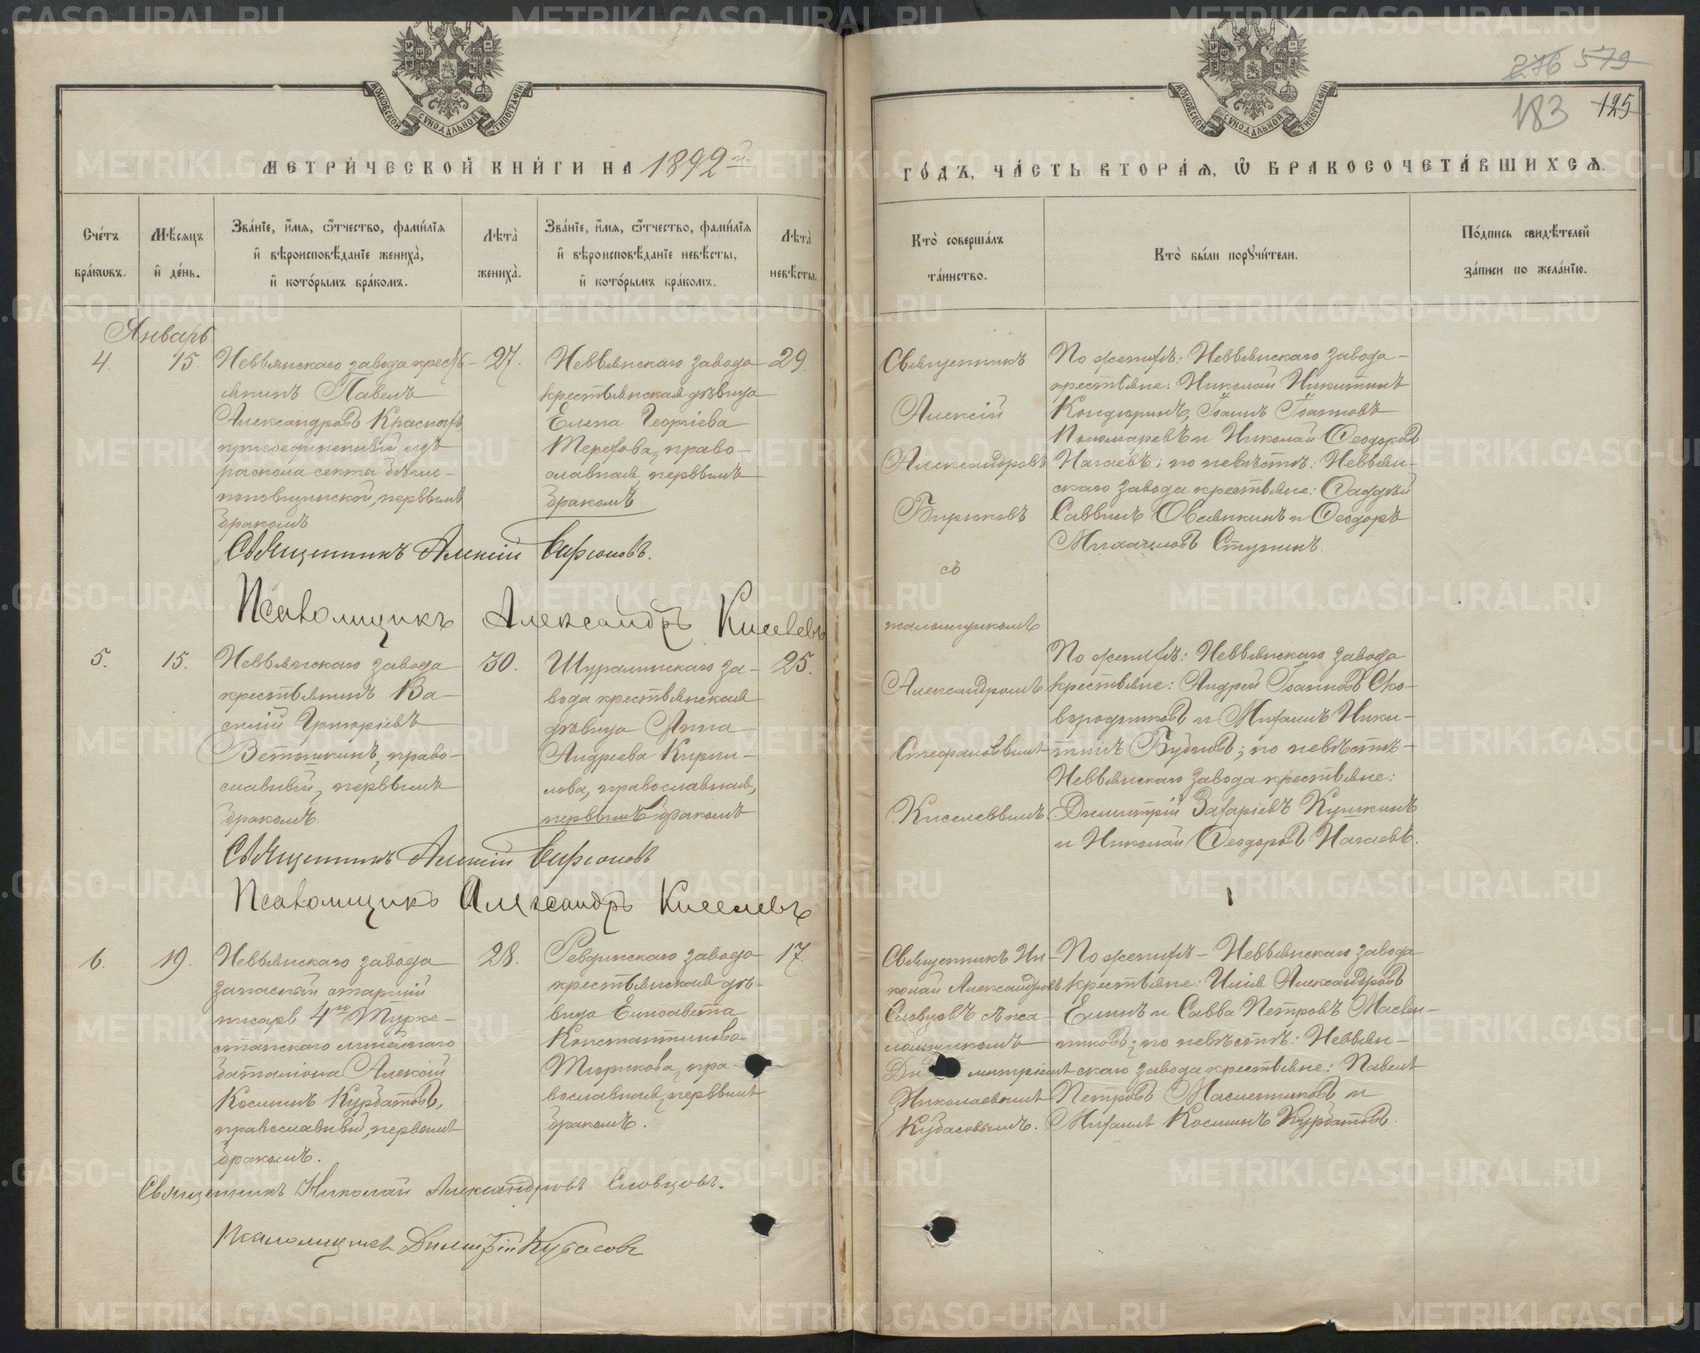 МЕТРИ́ЧЕСКОЙ КНИ́ГИ НА 1892 й
ГО́ДЪ, ЧА́СТЬ ВТОРА́Я, Ѡ҆ БРАКОСОЧЕТА́ВШИХСЯ.
276 579
183 125
Сче́тъ бра́кѡвъ.
Мѣ́сяцъ и҆ де́нь.
Зва́нїе, и҆́мя, ѻ҆́тчество, фами́лїя и҆ вѣроисповѣ́данїе жениха̀, и҆ кото́рымъ бра́комъ.
Лѣта̀ жениха̀.
Зва́нїе, и҆́мя, ѻ҆́тчество, фами́лїя и҆ вѣроисповѣ́данїе невѣ́сты, и҆ кото́рымъ бра́комъ.
Лѣта̀ невѣ́сты.
Кто̀ соверша́лъ та́инство.
Кто̀ бы́ли порꙋчи́тели.
По́дпись свидѣ́телей за́писи по жела́нїю.
Январь
4. 15.
Невьянскаго завода кресть-
янинъ Павелъ
Александровъ
присоединенный отъ
раскола секты бѣгло-
поповщинской, первымъ
бракомъ
27.
Невьянскаго завода
крестьянская дѣвица
Елена Георгіева
Терехова, право-
славная, первымъ
бракомъ
29.
Священникъ
Алексій
Александровъ
Бирюковъ
съ
псаломщикомъ
Александромъ
Стефановымъ
Киселевымъ.
По женихѣ: Невьянскаго завода
крестьяне: Николай Никитинъ
Кондюринъ, Іоаннъ Іоанновъ
Пономаревъ и Николай Ѳеодоровъ
Нагаевъ; по невѣстѣ: Невьян-
скаго завода крестьяне: Ѳаддей
Саввинъ Овсянкинъ и Ѳеодоръ
Михаиловъ Ступинъ.
Священникъ Алексій Бирюковъ.
Псаломщикъ Александръ Киселевъ
5. 15.
Невьянскаго завода
крестьянинъ Ва-
силій Григоріевъ
Ветошкинъ, право-
славный, первымъ
бракомъ
30.
Шуралинскаго за-
вода крестьянская
дѣвица Анна
Андреева Кирил-
лова, православная,
первымъ бракомъ
25.
По женихѣ: Невьянскаго завода
крестьяне: Андрей Іоанновъ Ско-
вородниковъ и Михаилъ Ники-
тинъ; по невѣстѣ-
Невьянскаго завода крестьяне:
Димитрій Захаріевъ Кушкинъ
и Николай Ѳеодоровъ Нагаевъ.
Священникъ Алексій Бирюковъ
Псаломщикъ Александръ Киселевъ
6. 19.
Невьянскаго завода
запасный старшій
писарь 4го Турке-
станскаго линейнаго
баталіона Алексій
Косминъ Курбатовъ,
православный, первымъ
бракомъ.
28.
Ревдинскаго завода
крестьянская дѣ-
вица Елисавета
Константинова
Тюрикова, пра-
вославная, первымъ
бракомъ.
17.
Священникъ Ни-
колай Александровъ
Словцовъ съ пса-
ломщикомъ
Димитріемъ
Николаевымъ
Кубасовымъ.
По женихѣ- Невьянскаго завода
крестьяне: Илія Александровъ
Елинъ и Савва Петровъ Маслен-
никовъ; по невѣстѣ: Невьян-
скаго завода крестьяне: Павелъ
Петровъ Масленниковъ и
Михаилъ Косминъ Курбатовъ.
Священникъ Николай Александровъ Словцовъ.
Псаломщикъ Димитрій Кубасовъ
METRIKI.GASO-URAL.RU